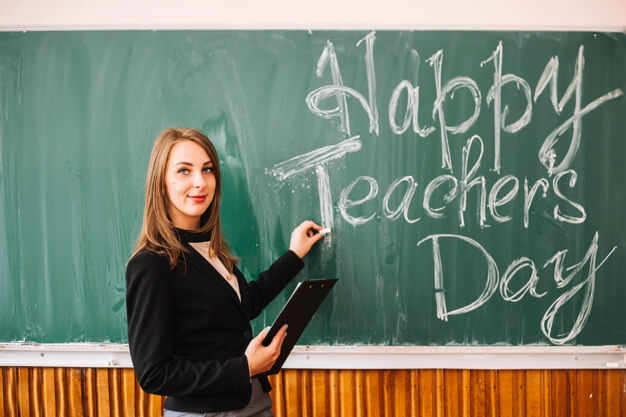 Happy
Teachers
Day